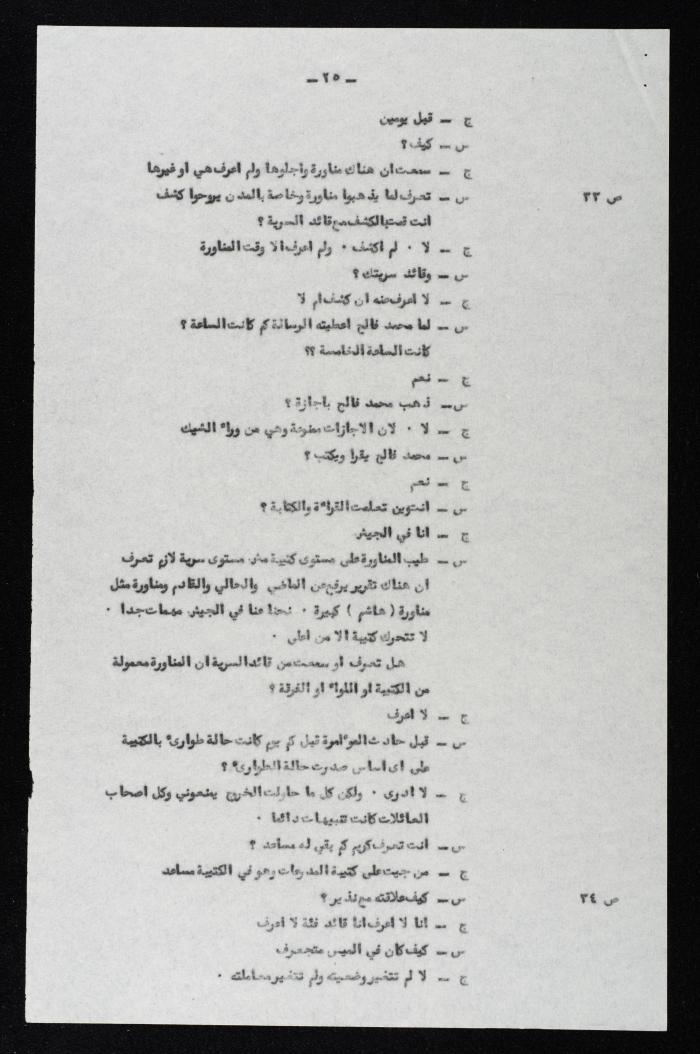 — ٢٥ —
ج — قبل يومين
س — كيف ؟
ج — سمعت ان هناك مناورة واجلوها ولم اعرف هي او غيرها
ص ٣٣
س — تعرف لما يذهبوا مناورة وخاصة بالمدن يروحوا كشف
انت قمت بالكشف مع قائد السرية ؟
ج — لا ٠ لم اكشف ٠ ولم اعرف الا وقت المناورة
س — وقائد سريتك ؟
ج — لا اعرف عنه ان كشف ام لا
س — لما محمد فالح اعطيته الرسالة كم كانت الساعة ؟
كانت الساعة الخامسة ؟؟
ج — نعم
س — ذهب محمد فالح باجازة ؟
ج — لا ٠ لان الاجازات ممنوعة وهي من وراء الشيك
س — محمد فالح يقرا ويكتب ؟
ج — نعم
س — انت وين تعلمت القراءة والكتابة ؟
ج — انا في الجيش
س — طيب المناورة على مستوى كتيبة مش مستوى سرية لازم تعرف
ان هناك تقرير يرفع عن الماضي والحالي والقادم ومناورة مثل
مناورة ( هاشم ) كبيرة ٠ نحنا عنا في الجيش مهمات جدا ٠
لا تتحرك كتيبة الا من اعلى ٠
هل تعرف او سمعت من قائد السرية ان المناورة معمولة
من الكتيبة او اللواء او الفرقة ؟
ج — لا اعرف
س — قبل حادث المؤامرة قبل كم يوم كانت حالة طوارىء بالكتيبة
على اى اساس صدرت حالة الطوارىء ؟
ج — لا ادرى ٠ ولكن كل ما حاولت الخروج يمنعوني وكل اصحاب
العائلات كانت تنبيهات دائما ٠
س — انت تعرف كريم كم بقي له مساعد ؟
ج — من جيت على كتيبة المدرعات وهو في الكتيبة مساعد
ص ٣٤
س — كيف علاقته مع نذير ؟
ج — انا لا اعرف انا قائد فئة لا اعرف
س — كيف كان في الميس متجعرف
ج — لا لم تتغير وضعيته ولم تتغير معاملته ٠